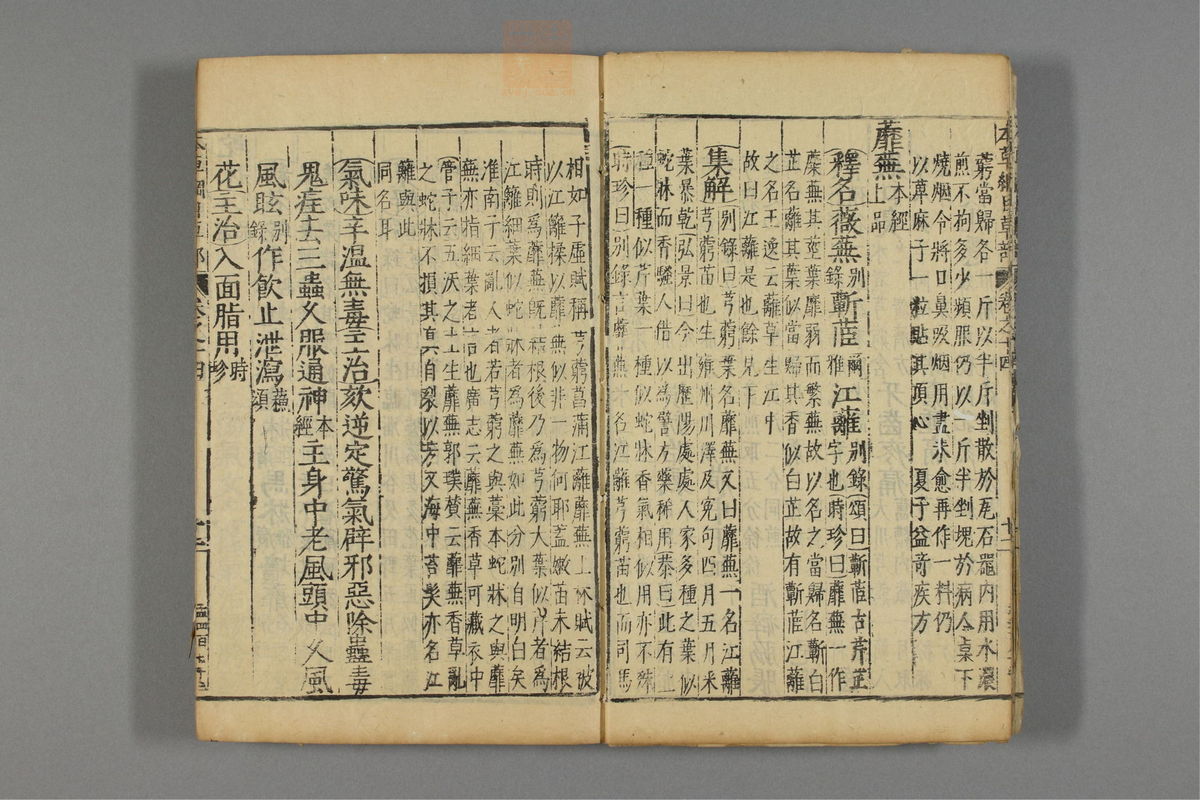 藭當歸各一斤以半斤剉散於瓦石器內用水濃
煎不拘多少頻服仍以一斤半剉塊於病人桌下
燒烟令將口鼻吸烟用盡未愈再作一料仍
以蓖麻子一粒貼其頂心夏子益奇疾方
蘼蕪本經上品
釋名薇蕪別錄蘄茝爾雅江蘺別錄頌曰蘄茝古芹芷
字也時珍曰蘼蕪一作
蘪蕪其莖葉靡弱而繁蕪故以名之當歸名蘄白
芷名蘺其葉似當歸其香似白芷故有蘄茝江蘺
之名王逸云蘺草生江中
故曰江蘺是也餘見下
集解別錄曰芎藭葉名蘼蕪又曰蘼蕪一名江蘺
芎藭苗也生雍州川澤及冤句四月五月采
葉暴乾弘景曰今出歷陽處處人家多種之葉似
蛇牀而香騷人借以為譬方藥稀用恭曰此有二
種一種似芹葉一種似蛇牀香氣相似用亦不殊
時珍曰別錄言蘼蕪一名江蘺芎藭苗也而司馬
相如子虛賦稱芎藭菖蒲江蘺蘼蕪上林賦云被
以江蘺揉以蘼蕪似非一物何耶蓋嫩苗未結根
時則為蘼蕪既結根後乃為芎藭大葉似芹者為
江蘺細葉似蛇牀者為蘼蕪如此分別自明白矣
淮南子云亂人者若芎藭之與藁本蛇牀之與蘼
蕪亦指細葉者言也廣志云蘼蕪香草可藏衣中
管子云五沃之土生蘼蕪郭璞贊云蘼蕪香草亂
之蛇牀不損其真自裂以芳又海中苔髮亦名江
蘺與此
同名耳
氣味辛溫無毒主治欬逆定驚氣辟邪惡除蠱毒
鬼疰去三蟲久服通神本經主身中老風頭中久風
風眩別錄作飲止泄瀉蘇頌
花主治入面脂用時珍